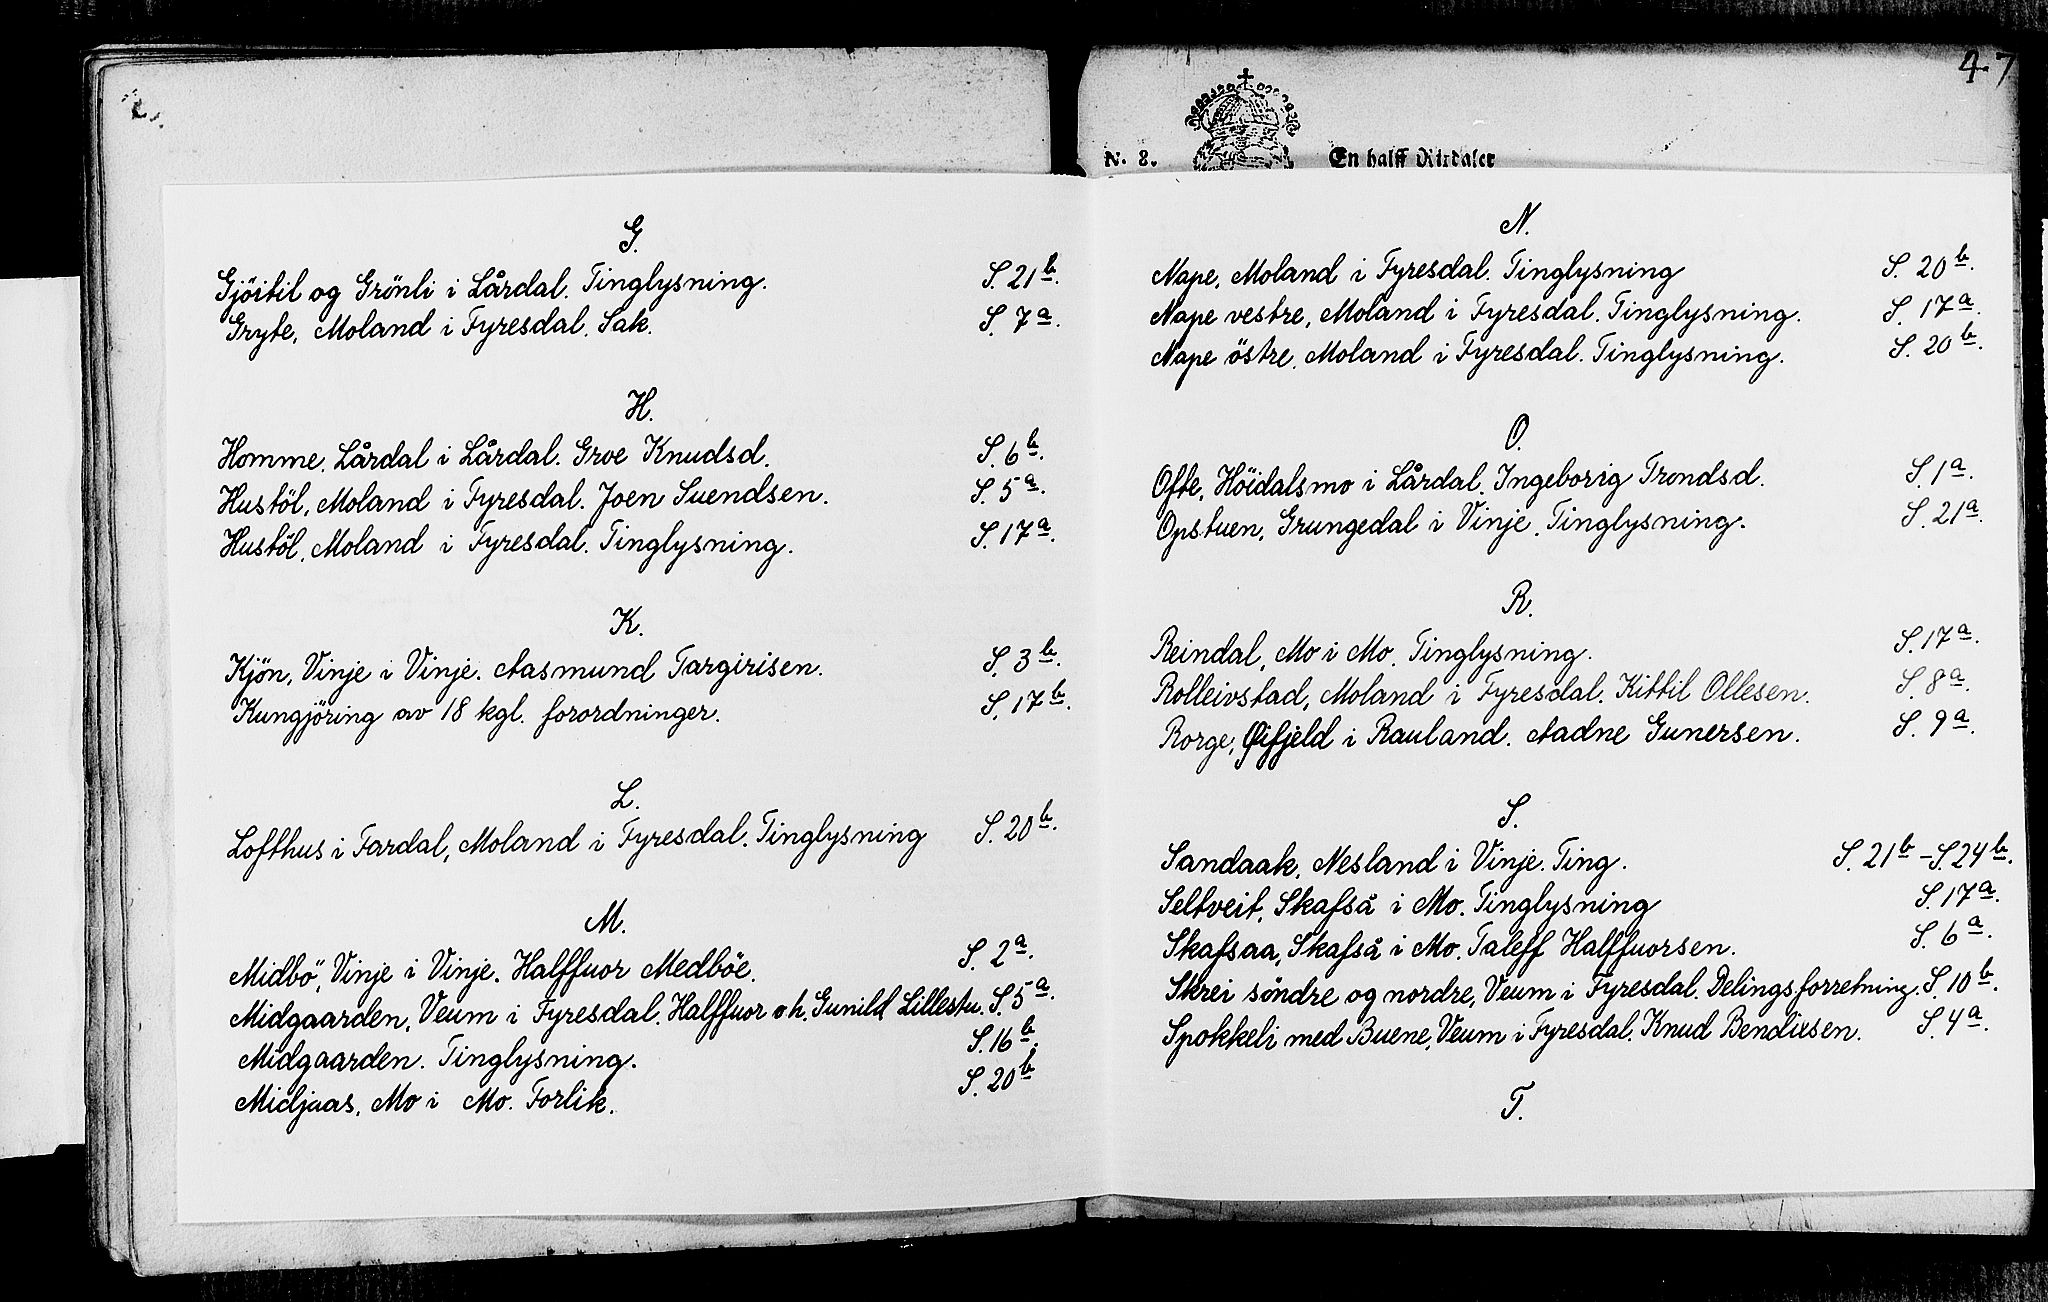 G.
Gjöitil og Grönli i Lårdal. Tinglysning. S. 21b.
Gryte, Moland i Fyresdal. Sak. S. 7a.
H.
Homme, Lårdal i Lårdal. Groe Knudsd. S. 6b.
Hustöl, Moland i Fyresdal. Joen Suendsen. S. 5a.
Hustöl, Moland i Fyresdal. Tinglysning. S. 17a.
K.
Kjön, Vinje i Vinje. Aasmund Targirisen. S. 3b.
Kungjöring av 18 kgl. forordninger. S. 17b.
L.
Lofthus i Fardal, Moland i Fyresdal. Tinglysning S. 20b.
M.
Midbö, Vinje i Vinje. Halffuor Medböe. S. 2a.
Midgaarden, Veum i Fyresdal. Halffuor o.h. Gunild Lillestu. S. 5a.
Midgaarden. Tinglysning. S. 16b.
Midjaas, Mo i Mo. Forlik. S. 20b
47
N. 8. En halff Rixdaler
N.
Nape, Moland i Fyresdal. Tinglysning S. 20b.
Nape vestre, Moland i Fyresdal. Tinglysning. S. 17a.
Nape östre, Moland i Fyresdal. Tinglysning. S. 20b.
O.
Ofte, Höidalsmo i Lårdal. Ingeborig Trondsd. S. 1a.
Opstuen, Grungedal i Vinje. Tinglysning. S. 21a.
R.
Reindal, Mo i Mo. Tinglysning. S. 17a.
Rolleivstad, Moland i Fyresdal. Kittil Ollesen. S. 8a.
Rorge, Øifjeld i Rauland. Aadne Gunersen. S. 9a.
S.
Sandaak, Nesland i Vinje. Ting. S. 21b - S. 24b.
Seltveit, Skafså i Mo. Tinglysning S. 17a.
Skafsaa, Skafså i Mo. Taleff Halffuorsen. S. 6a.
Skrei söndre og nordre, Veum i Fyresdal. Delingsforretning. S. 10b.
Spokkeli med Buene, Veum i Fyresdal. Knud Bendixsen. S. 4a.
T.